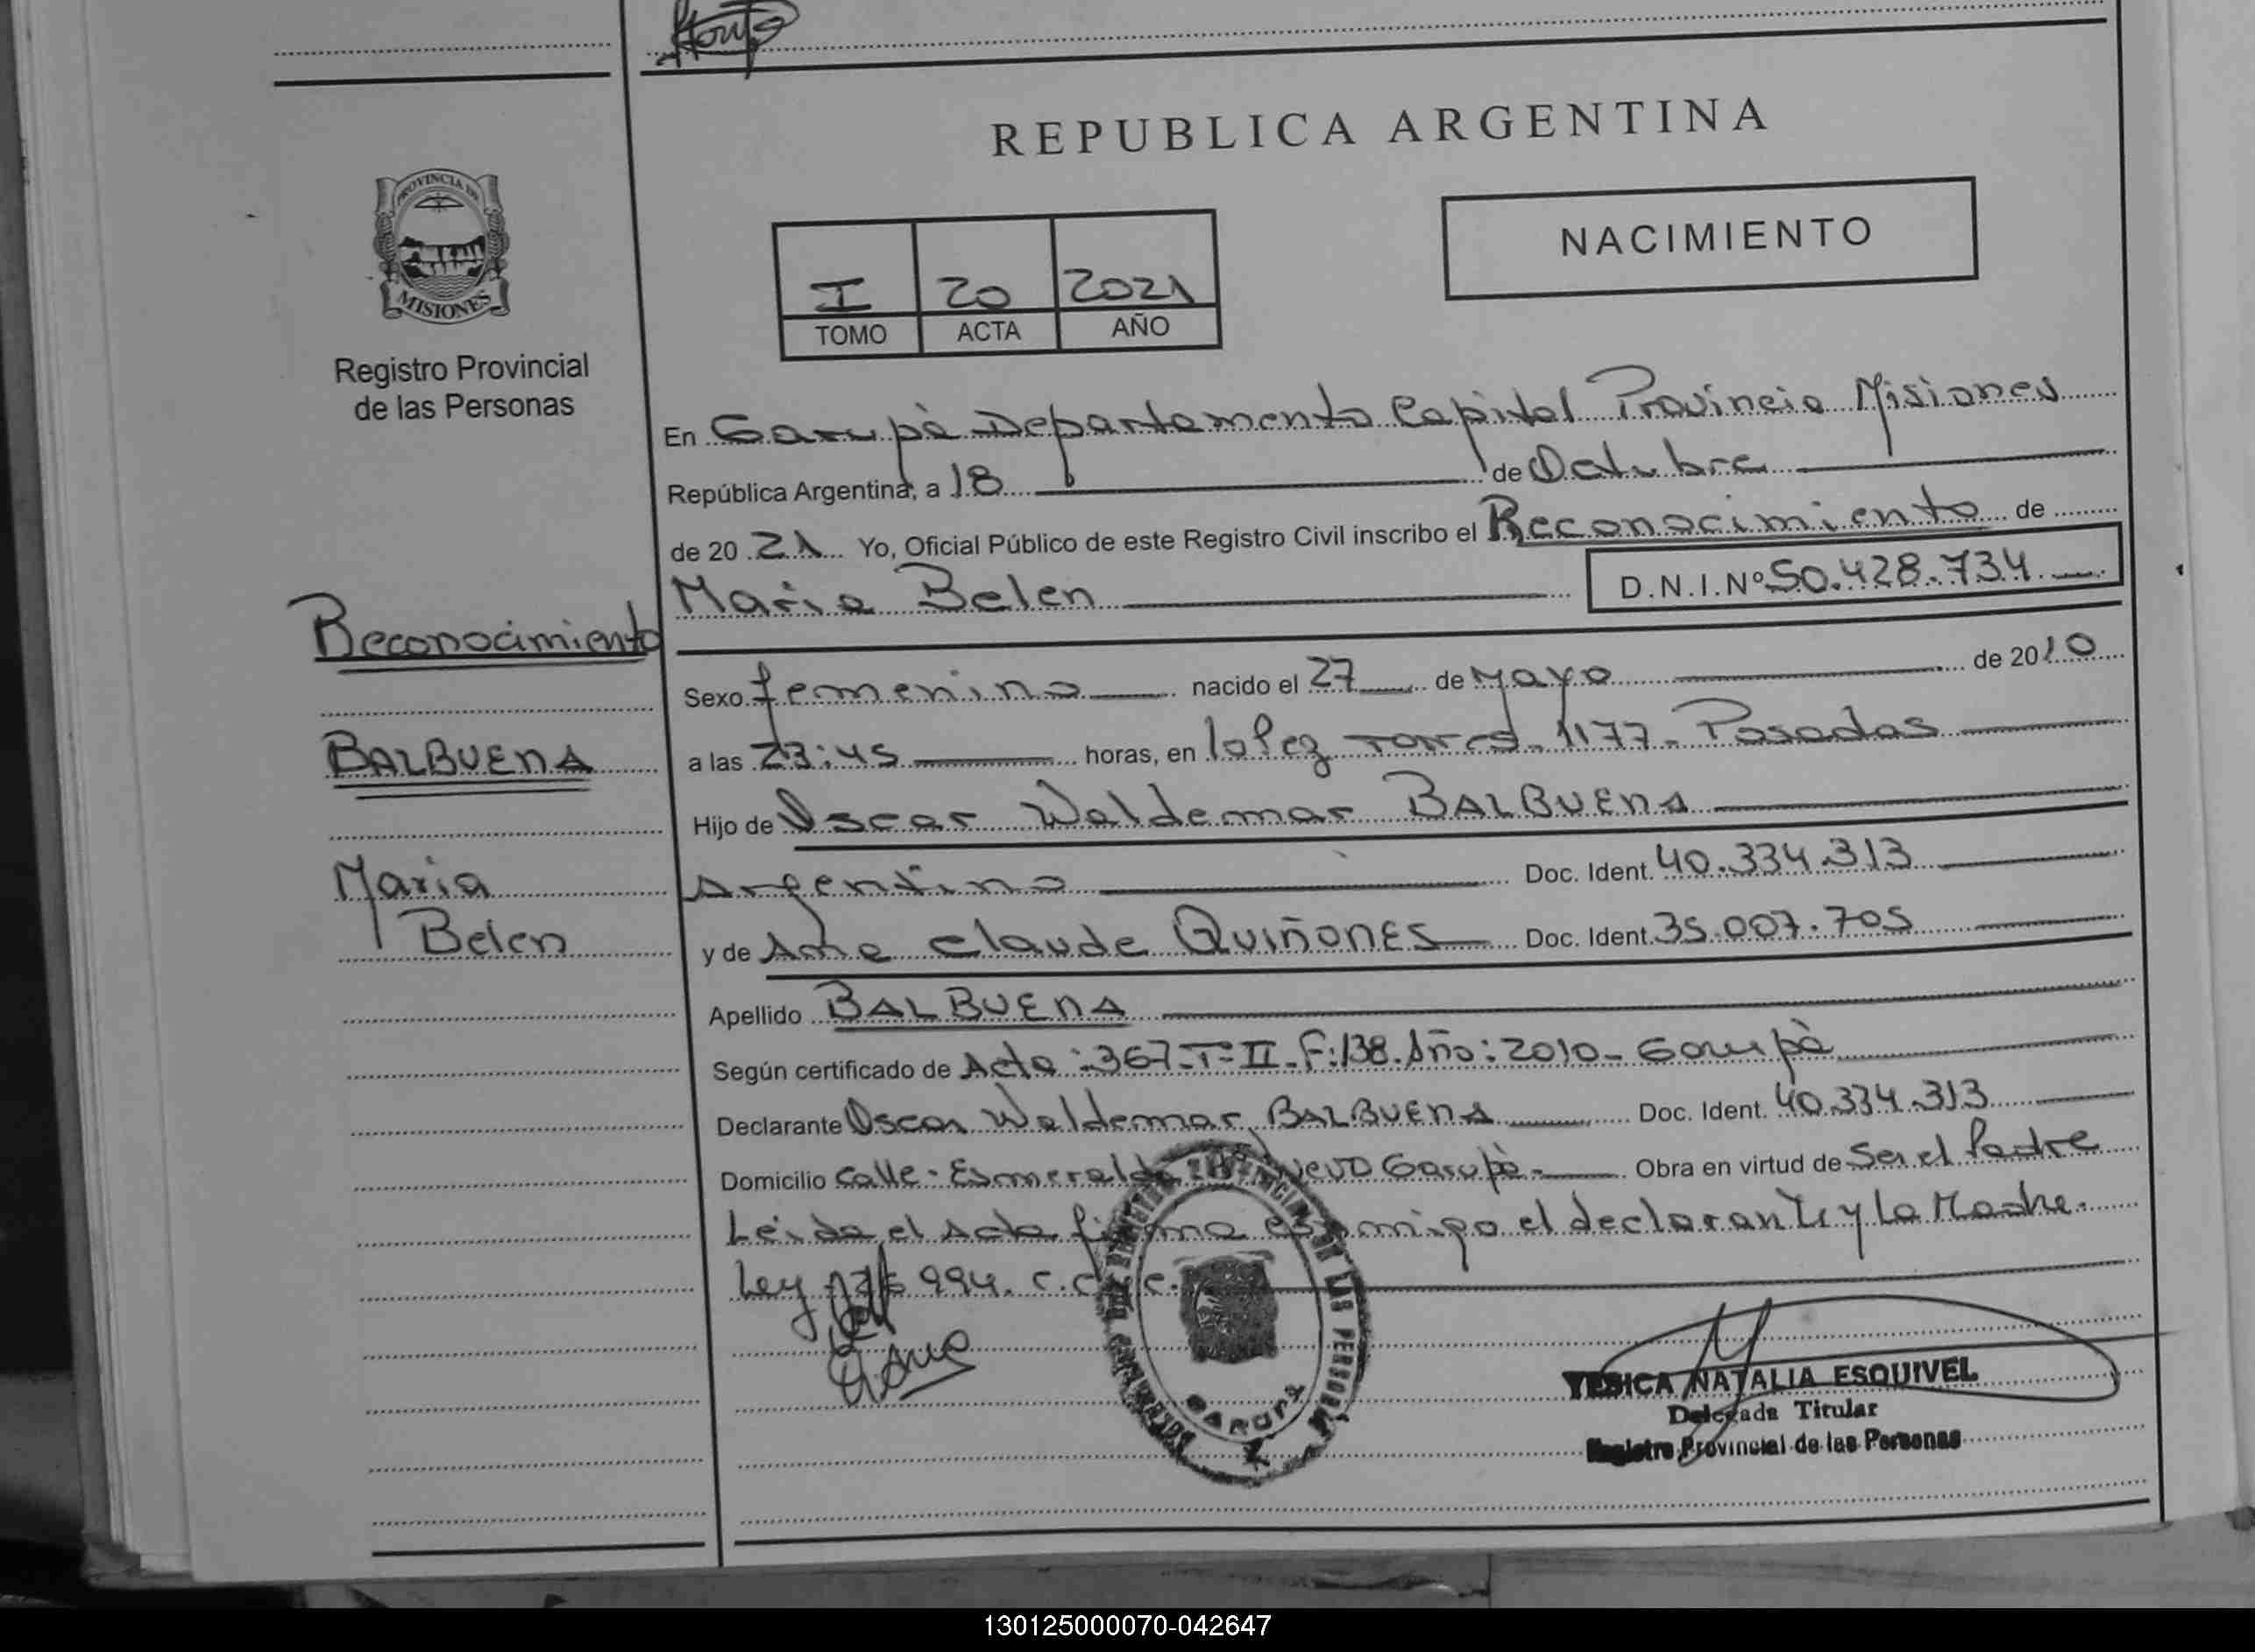 REPUBLICA ARGENTINA
NACIMIENTO
I 20 2021
TOMO ACTA AÑO
PROVINCIA DE
MISIONES
Registro Provincial
de las Personas
Reconocimiento
BALBUENA
Maria
Belen
En Garupà Departamento Capital Provincia Misiones
República Argentina, a 18 de Octubre
de 20 21 Yo, Oficial Público de este Registro Civil inscribo el Reconocimiento de
Maria Belen D.N.I.Nº 50.428.734
Sexo femenino nacido el 27 de Mayo de 2010
a las 23:45 horas, en lopez torres 1177 - Posadas
Hijo de Oscar Waldemar BALBUENA
Argentino Doc. Ident. 40.334.313
y de Ana Claude QUIÑONES Doc. Ident. 35.007.705
Apellido BALBUENA
Según certificado de Acta: 367-Tº II - F: 138. Año: 2010 - Garupà
Declarante Oscar Waldemar BALBUENA Doc. Ident. 40.334.313
Domicilio Calle - Esmeralda Nuevo Garupà - Obra en virtud de Ser el Padre
Leida el Acta firma conmigo el declarante y La Madre.
Ley 994. C.C
GARUPA
YESICA NATALIA ESQUIVEL
Delegada Titular
Registro Provincial de las Personas
130125000070-042647